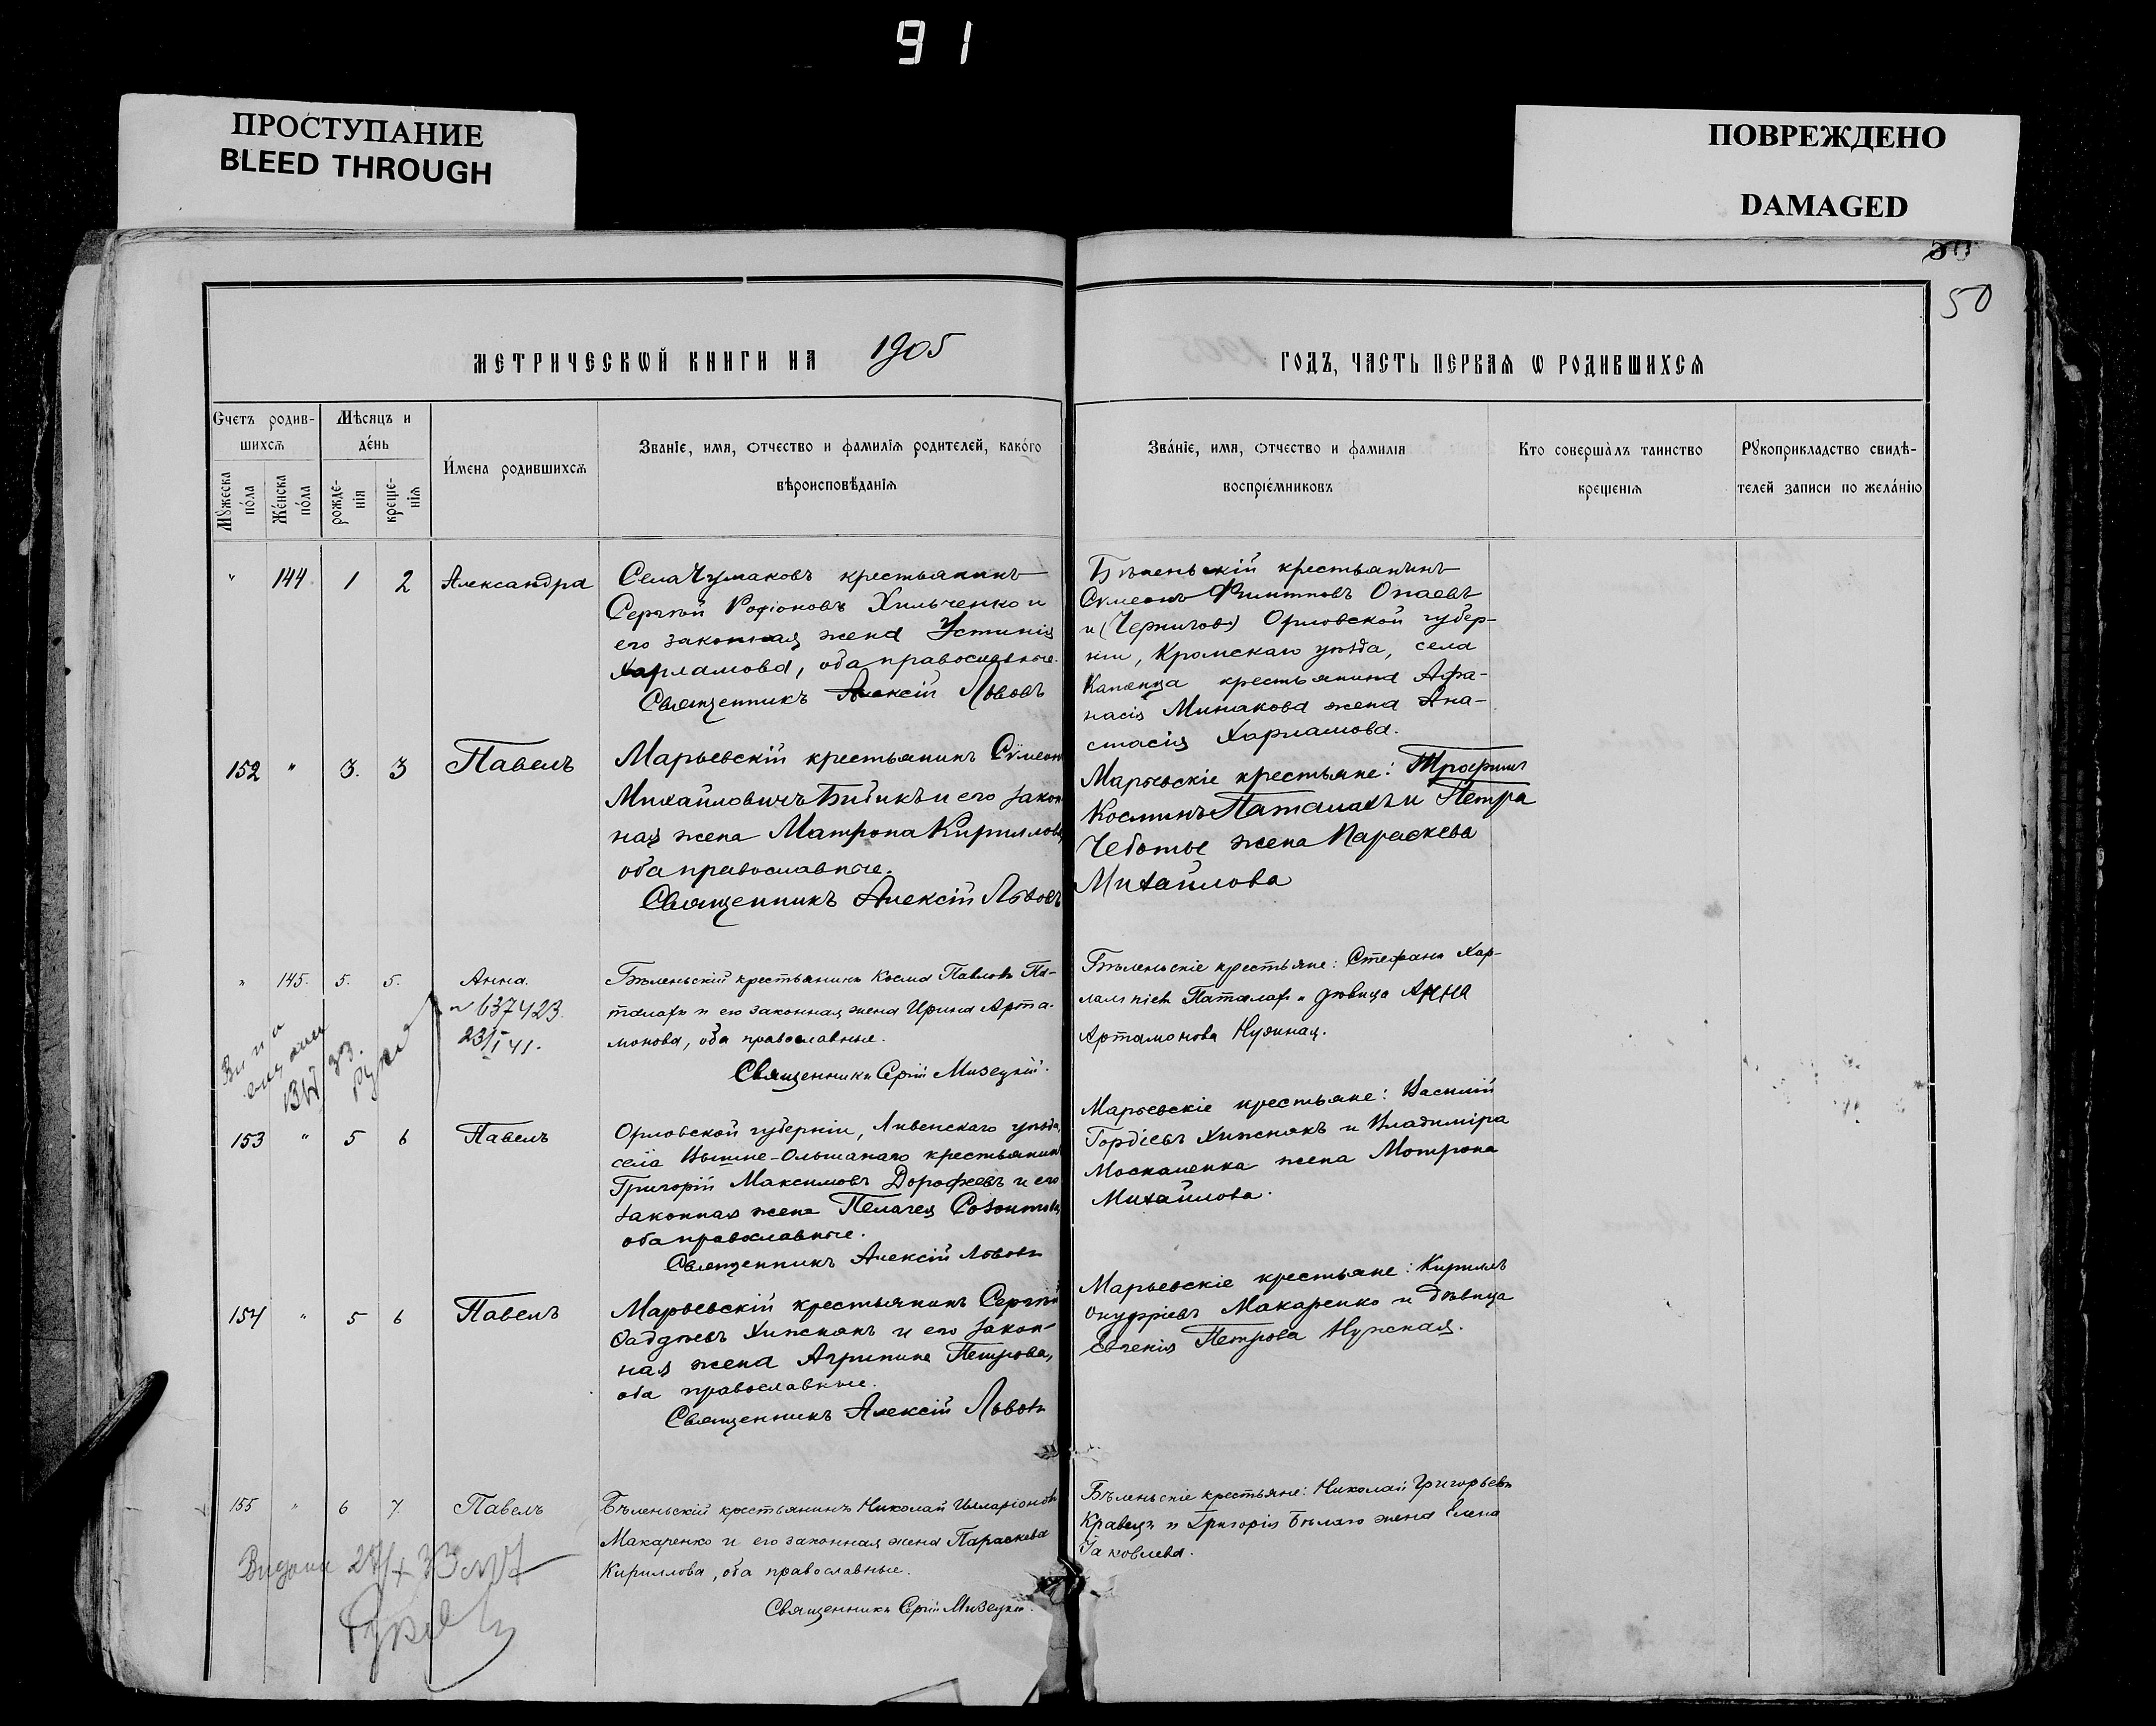 91
ПРОСТУПАНИЕ
BLEED THROUGH
ПОВРЕЖДЕНО
DAMAGED
50
МЕТРИЧЕСКѠЙ КНИГИ НА 1905
ГОДЪ, ЧАСТЬ ПЕРВАЯ Ѡ РОДИВШИХСѦ
Счетъ родив-
шихсѧ
Мѣсяцъ и
де́нь
И́мена родившихсѧ
Званіе, имя, ѻтчество и фамилія родителей, како́го
вѣроисповѣ́данія
Мꙋжеска
по́ла
Же́нска
по́ла
рожде-
нія
креще-
нія
Зва́ніе, имя, ѻтчество и фамилія
воспріе́мниковъ
Кто соверша̀лъ таинство
крещенія
Рꙋкоприкладство свидѣ-
телей записи по жела́нію
" 144. 1 2 Александра
Села Чумаковъ крестьянинъ
Сергѣй Родіоновъ Хильченко и
его законная жена Устинія
Харламова, оба православные.
Священникъ Алексій Львовъ
Бѣленьскій крестьянинъ
Сѵмеонъ Филипповъ
и Орловской губер-
ніи, Кромскаго уѣзда, села
крестьянина Афа-
насія Минакова жена Ана-
стасія Харламова.
152 " 3. 3 Павелъ
Марьевскій крестьянинъ Сѵмеонъ
Михайловичъ Бибикъ и его закон
ная жена Матрона Кириллова
оба православные.
Священникъ Алексій Львовъ
Марьевскіе крестьяне: Трофимъ
Косминъ Паталахъ и Петра
Чеботье жена Параскева
Михайлова
" 145. 5. 5. Анна.
№ 637423.
23/I 41.
Бѣленьскій крестьянинъ Косма Павловъ Па-
талахъ и его законная жена Ирина Арта-
монова, оба православные.
Священникъ Сергій Мизецкій.
Бѣленьскіе крестьяне: Стефанъ Хар-
лампіевъ Паталахъ и дѣвица Анна
Артамонова Нужная.
153 " 5 6 Павелъ
Орловской губерніи, Ливенскаго уѣзда,
села Вышне-Ольшанаго крестьянинъ
Григорій Максимовъ Дорофеевъ и его
законная жена Пелагея
оба православные.
Священникъ Алексій Львовъ
Марьевскіе крестьяне: Василій
Гордіевъ Хижнякъ и Владиміра
Москаленка жена Мотрона
Михайлова.
154 " 5 6 Павелъ
Марьевскій крестьянинъ Сергѣй
Фаддѣевъ Хижнякъ и его закон-
ная жена Агрипина Петрова,
оба православные.
Священникъ Алексій Львовъ
Марьевскіе крестьяне: Кириллъ
Онуфріевъ Макаренко и дѣвица
Евгенія Петрова Нужная.
155 " 6 7. Павелъ
Бѣленьскій крестьянинъ Николай Илларіоновъ
Макаренко и его законная жена Параскева
Кириллова, оба православные.
Священникъ Сергій Мизецкій.
Бѣленьскіе крестьяне: Николай Григорьевъ
Кравецъ и Григорія Бѣлаго жена Елена
Іаковлева.